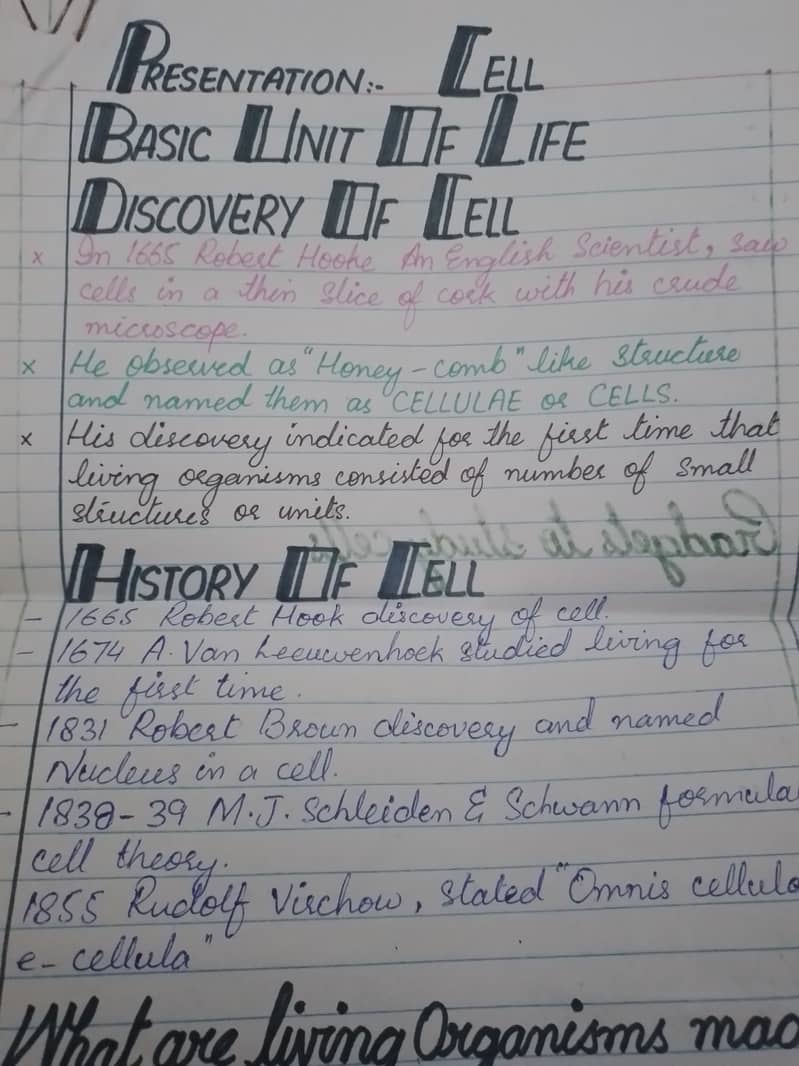 PRESENTATION:- CELL
BASIC UNIT OF LIFE
DISCOVERY OF CELL
x In 1665 Robert Hooke An English Scientist, saw
cells in a thin slice of cork with his crude
microscope.
x He observed as "Honey-comb" like structure
and named them as CELLULAE or CELLS.
x His discovery indicated for the first time that
living organisms consisted of number of small
structures or units.
Gradgets to study cells
HISTORY OF CELL
- 1665 Robert Hook discovery of cell.
- 1674 A. Van Leeuwenhoek studied living for
the first time.
- 1831 Robert Broun discovery and named
Nucleus in a cell.
- 1838-39 M.J. Schleiden & Schwann formula
cell theory.
1855 Rudolf Virchow, stated "Omnis cellula
e- cellula"
What are living Organisms mad